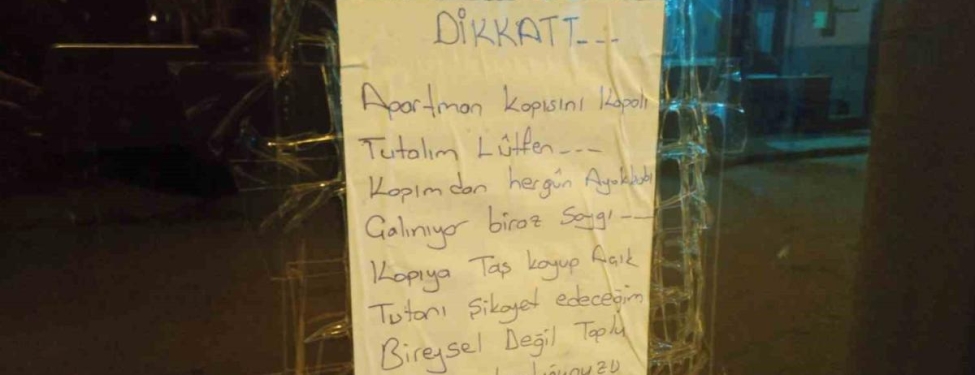 DİKKATT---
Apartman kapısını Kapalı
Tutalım Lûtfen---
Kapımdan hergûn Ayakkabı
Çalınıyor biraz Saygı---
Kapıya Taş koyup Açık
Tutanı Şikayet edeceğim
Bireysel Değil Toplu